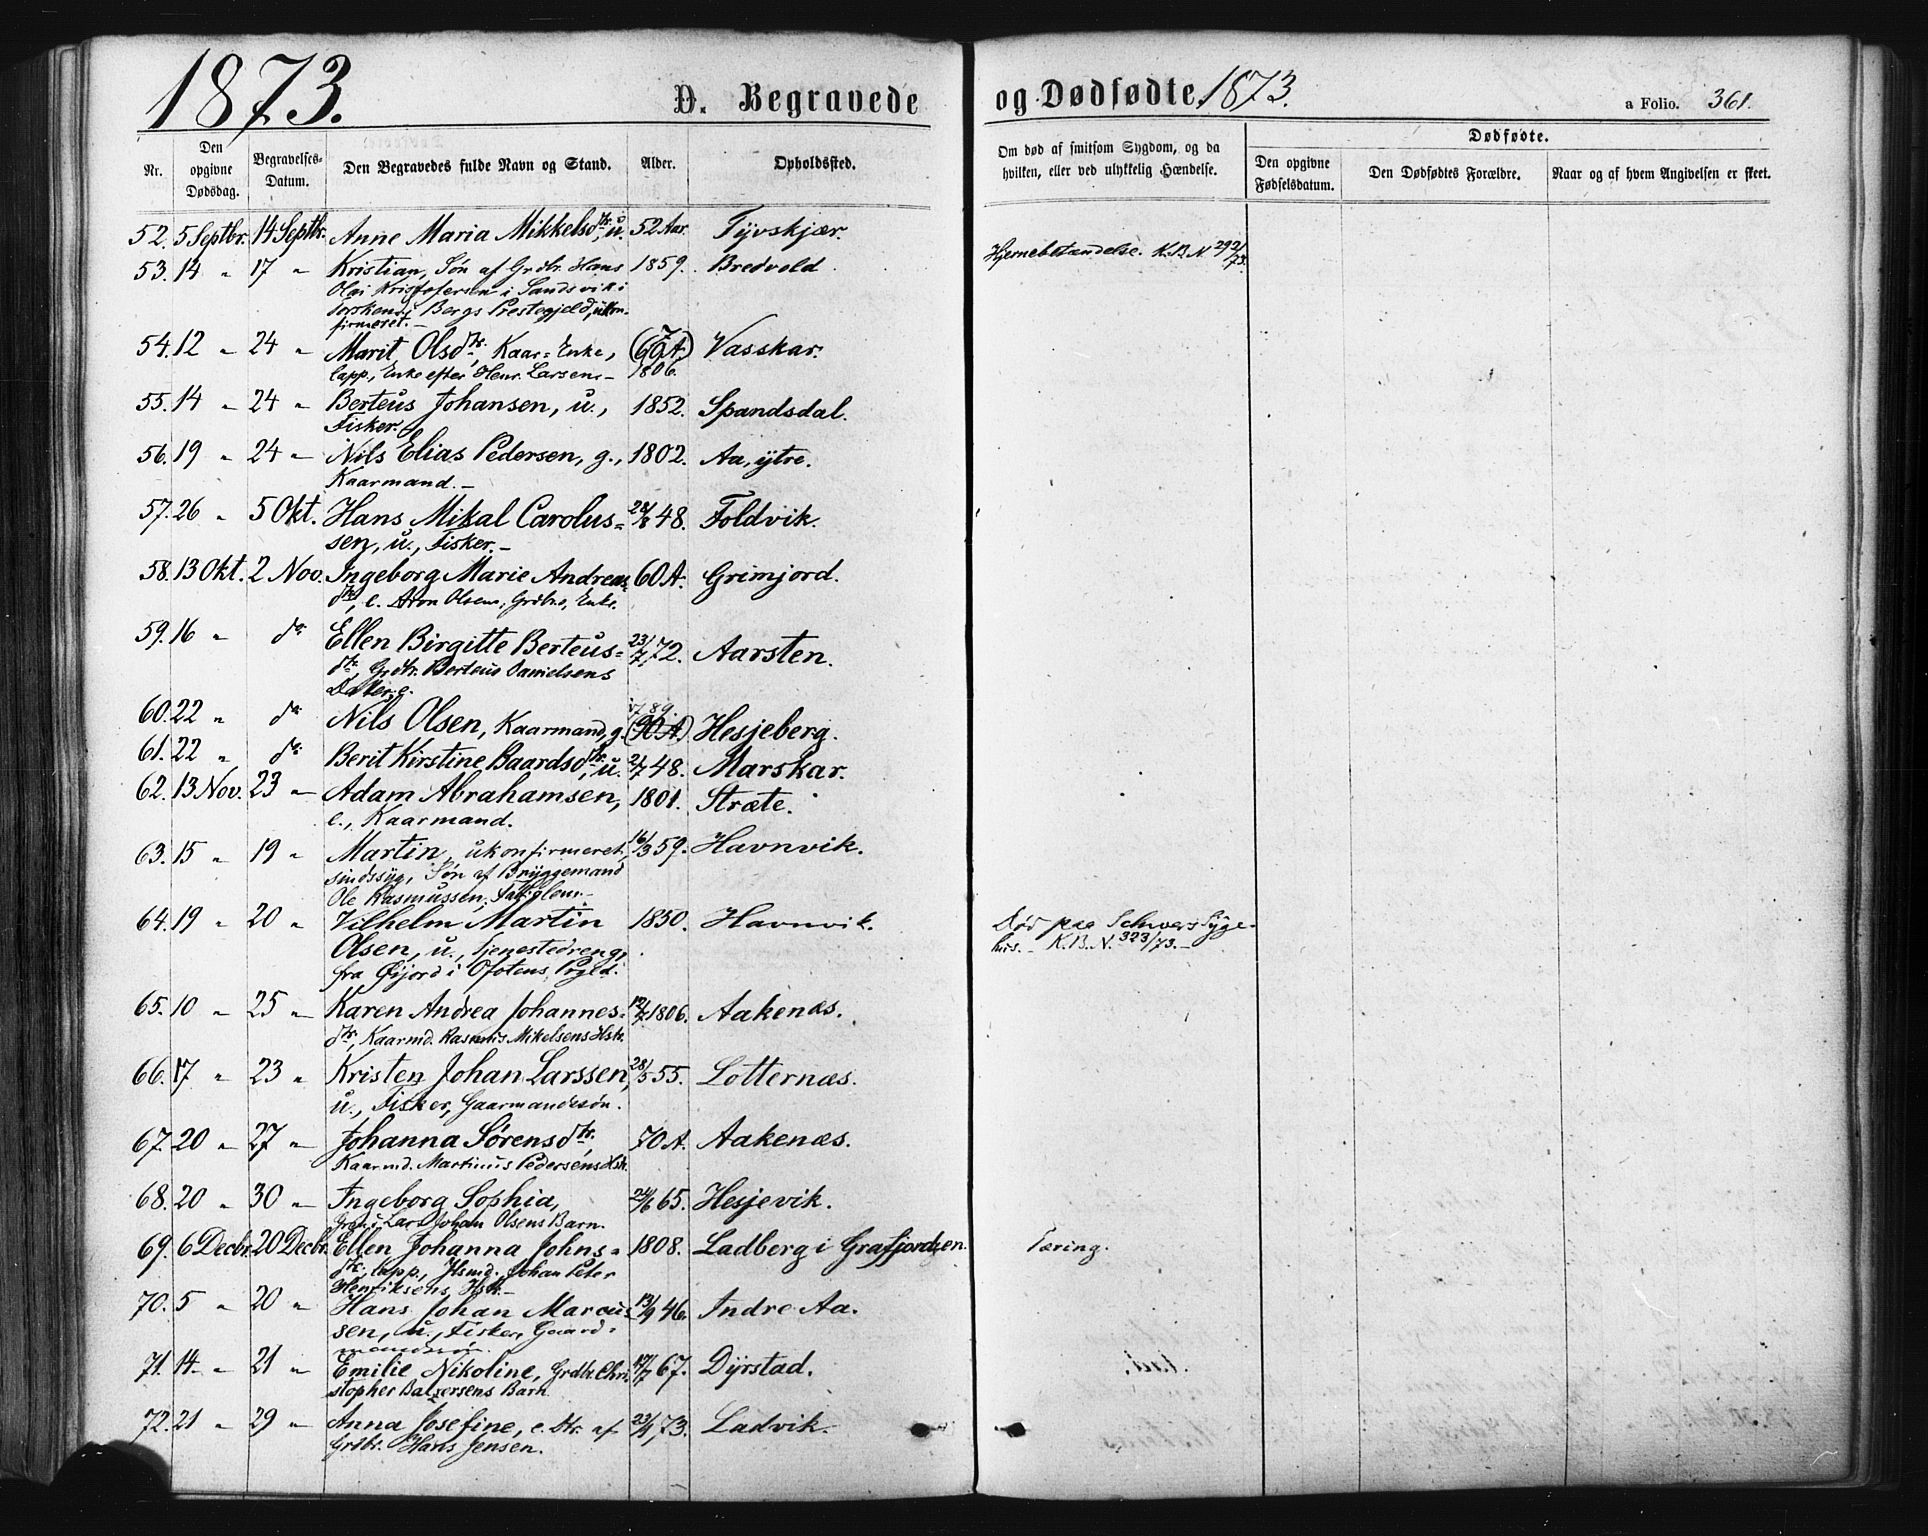 1873.
D. Begravede
og Dødfødte 1873.
a Folio. 361.
Nr.
Den opgivne Dødsdag.
Begravelses-Datum.
Den Begravedes fulde Navn og Stand.
Alder.
Opholdssted.
Om død af smitsom Sygdom, og da hvilken, eller ved ulykkelig Hændelse.
Dødfødte.
Den opgivne Fødselsdatum.
Den Dødfødtes Forældre.
Naar og af hvem Angivelsen er skeet.
52. 5 Septbr. 14 Septbr. Anne Maria Mikkelsdtr., u. 52 Aar. Tyvskjær.
53. 14 " 17 " Kristian, Søn af Grdbr. Hans 1859. Bredvold Hjernebetændelse. K.B.N. 292/73.
Olai Kristofersen i Sandsvik i
Torsken i Bergs Prestegjeld, ukon-
firmeret.-
54. 12 " 24 " Marit Olsdtr., Kaar-Enke, (67 A.) Vasskar.
lapp., Enke efter Henr. Larsen.- 1806.
55. 14 " 24 " Berteus Johansen, u., 1852. Spandsdal.
Fisker.
56. 19 " 24 " Nils Elias Pedersen, g., 1802. Aa, ytre.
Kaarmand.-
57. 26 " 5 Okt. Hans Mikal Carolus- 28/8 48. Foldvik.
sen, u., Fisker.-
58. 13 Okt. 2 Nov. Ingeborg Marie Andreas- 60 A. Grimjord.
dtr., e. Aron Olsens, Grdbrs, Enke.
59. 16 " do. Ellen Birgitte Berteus- 23/7 72. Aarsten.
dtr., Grdbr. Berteus Danielsens
Datter, e.
60. 22 " do. Nils Olsen, Kaarmand, g. (90 A) Hesjeberg.
61. 22 " do. Berit Kirstine Baardsdtr., u. 2/7 48. Marskar.
62. 13 Nov. 23 " Adam Abrahamsen, 1801. Stræte.
e., Kaarmand.
63. 15 " 19 " Martin, ukonfirmeret, 16/3 59. Havnvik.
sindssyg, Søn af Bryggemand
Ole Rasmussen,
64. 19 " 20 " Vilhelm Martin 1850. Havnvik. Død paa Schwers Syge-
Olsen, u., Tjenestedreng, hus.- K.B.N. 323/73.-
fra Øijord i Ofotens Pgld.
65. 10 " 25 " Karen Andrea Johannes- 12/7 1806. Aakenæs.
dtr., Kaarmd. Rasmus Mikelsens Hstr.
66. 17 " 23 " Kristen Johan Larssen, 28/5 55. Lotternæs.
u., Fisker, Gaarmandssøn.
67. 20 " 27 " Johanna Sørensdtr., 70 A. Aakenæs.
Kaarmd. Martinus Pedersens Hstr.
68. 20 " 30 " Ingeborg Sophia, 24/6 65. Hesjevik.
Lars Johan Olsens Barn.
69. 6 Decbr. 20 Decbr. Ellen Johanna Johns- 1808. Ladberg i Grafjorden. Tæring.
dtr., lapp., Hsmd. Johan Peter
Henriksens Hstr.-
70. 5 " 20 " Hans Johan Marcus- 13/9 46. Indre Aa.
sen, u., Fisker, Gaard-
mandssøn.
71. 14 " 21 " Emilie Nikoline, Grdbr. Chri- 17/7 67. Dyrstad.
stopher Balzersens Barn.
72. 21 " 29 " Anna Josefine, e. Dtr. af 23/1, 73. Ladvik.
Grdbr. Hans Jensen.